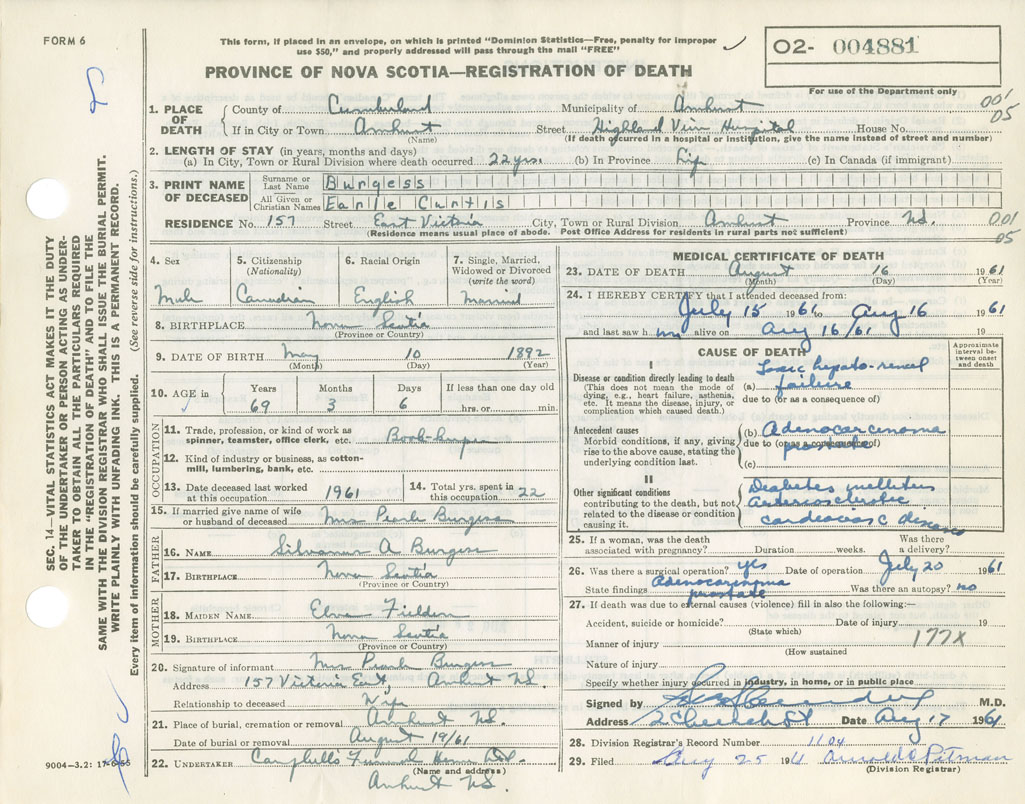 FORM 6
This form, if placed in an envelope, on which is printed "Dominion Statistics—Free, penalty for improper
use $50," and properly addressed will pass through the mail "FREE"
02- 004881
For use of the Department only
PROVINCE OF NOVA SCOTIA—REGISTRATION OF DEATH
001
05
1. PLACE OF DEATH { County of Cumberland Municipality of Amherst
If in City or Town Amherst Street Highland View Hospital House No.
(Name) (If death occurred in a hospital or institution, give the name instead of street and number)
2. LENGTH OF STAY (in years, months and days)
(a) In City, Town or Rural Division where death occurred 22 yrs. (b) In Province Life (c) In Canada (if immigrant)
3. PRINT NAME OF DECEASED { Surname or Last Name Burgess
All Given or Christian Names Earle Curtis
RESIDENCE No. 157 Street East Victoria City, Town or Rural Division Amherst Province N.S. 001
05
(Residence means usual place of abode. Post Office Address for residents in rural parts not sufficient)
4. Sex 5. Citizenship (Nationality) 6. Racial Origin 7. Single, Married, Widowed or Divorced (write the word)
Male Canadian English Married
8. BIRTHPLACE Nova Scotia
(Province or Country)
9. DATE OF BIRTH May 10 1892
(Month) (Day) (Year)
10. AGE in Years Months Days If less than one day old
69 3 6 hrs. or min.
OCCUPATION
11. Trade, profession, or kind of work as
spinner, teamster, office clerk, etc. Book-keeper
12. Kind of industry or business, as cotton-
mill, lumbering, bank, etc.
13. Date deceased last worked at this occupation 1961 14. Total yrs. spent in this occupation 22
15. If married give name of wife
or husband of deceased Mrs Pearle Burgess
FATHER
16. NAME Silvanus A Burgess
17. BIRTHPLACE Nova Scotia
(Province or Country)
MOTHER
18. MAIDEN NAME Fielden
19. BIRTHPLACE Nova Scotia
(Province or Country)
20. Signature of informant Mrs Pearle Burgess
Address 157 Victoria East, Amherst N.S.
Relationship to deceased Wife
21. Place of burial, cremation or removal Amherst N.S.
Date of burial or removal August 19/61
22. UNDERTAKER Campbell's Funeral Home Ltd.
(Name and address)
Amherst N.S.
MEDICAL CERTIFICATE OF DEATH
23. DATE OF DEATH August 16 1961
(Month) (Day) (Year)
24. I HEREBY CERTIFY that I attended deceased from:
July 15 1961 to Aug 16 1961
and last saw him alive on Aug 16/61 19
CAUSE OF DEATH
Approximate interval between onset and death
I
Disease or condition directly leading to death
(This does not mean the mode of
dying, e.g., heart failure, asthenia,
etc. It means the disease, injury, or
complication which caused death.)
(a) Toxic hepato-renal
failure
due to (or as a consequence of)
Antecedent causes
Morbid conditions, if any, giving
rise to the above cause, stating the
underlying condition last.
(b) Adenocarcinoma
prostate
due to (or as a consequence of)
(c)
II
Other significant conditions
contributing to the death, but not
related to the disease or condition
causing it.
Diabetes mellitus
Arteriosclerotic
cardiovasc disease
25. If a woman, was the death
associated with pregnancy? Duration weeks. Was there a delivery?
26. Was there a surgical operation? yes Date of operation July 20 1961
State findings Adenocarcinoma prostate Was there an autopsy? no
27. If death was due to external causes (violence) fill in also the following:—
Accident, suicide or homicide? Date of injury 19
(State which)
Manner of injury 177X
(How sustained
Nature of injury
Specify whether injury occurred in industry, in home, or in public place
Signed by M.D.
Address 5 Church St Date Aug 17 1961
28. Division Registrar's Record Number 1104
29. Filed Aug 25 1961 Arnold E Pitman
(Division Registrar)
SEC. 14—VITAL STATISTICS ACT MAKES IT THE DUTY
OF THE UNDERTAKER OR PERSON ACTING AS UNDER-
TAKER TO OBTAIN ALL THE PARTICULARS REQUIRED
IN THE "REGISTRATION OF DEATH" AND TO FILE THE
SAME WITH THE DIVISION REGISTRAR WHO SHALL ISSUE THE BURIAL PERMIT.
WRITE PLAINLY WITH UNFADING INK. THIS IS A PERMANENT RECORD.
Every item of information should be carefully supplied. (See reverse side for instructions.)